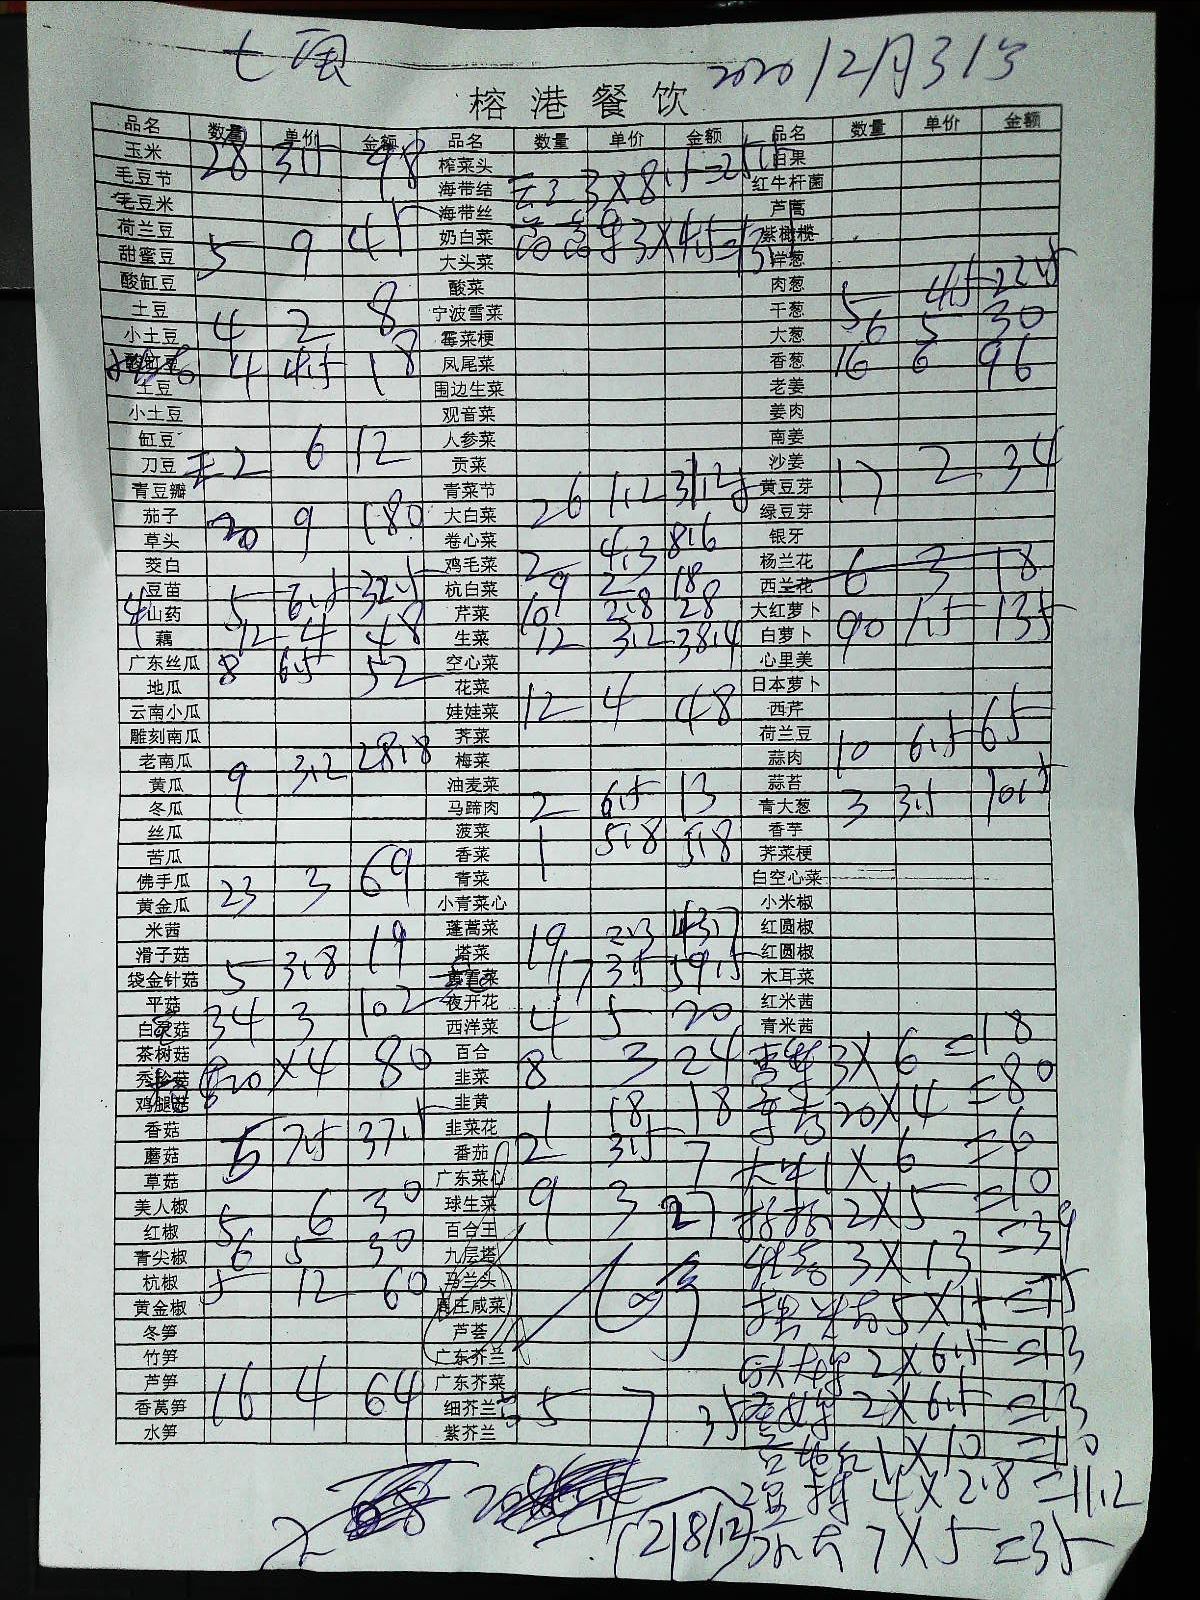 七
2020 12月31号
榕港餐饮
品名 数量 单价 金额 品名 数量 单价 金额 品名 数量 单价 金额
玉米 28 3.5 98 榨菜头 白果
毛豆节 海带结 3×8.5=25.5 红牛杆菌
毛豆米 海带丝 芦蒿
荷兰豆 5 9 45 奶白菜 3×4.5=13.5 紫橄榄
甜蜜豆 大头菜 洋葱
酸缸豆 酸菜 肉葱 5 4.5 22.5
土豆 4 2 8 宁波雪菜 干葱 6 5 30
小土豆 霉菜梗 大葱
酸缸豆 4 4.5 18 凤尾菜 香葱 16 6 96
土豆 围边生菜 老姜
小土豆 观音菜 姜肉
缸豆 人参菜 南姜
刀豆 2 6 12 贡菜 沙姜
青豆瓣 青菜节 黄豆芽 17 2 34
茄子 20 9 180 大白菜 26 1.2 31.2 绿豆芽
草头 卷心菜 银牙
茭白 鸡毛菜 2 4.3 8.6 杨兰花
豆苗 5 6.5 32.5 杭白菜 9 2 18 西兰花 6 3 18
山药 芹菜 10 2.8 28 大红萝卜
藕 12 4 48 生菜 12 3.2 38.4 白萝卜 90 1.5 135
广东丝瓜 8 6.5 52 空心菜 心里美
地瓜 花菜 日本萝卜
云南小瓜 娃娃菜 12 4 48 西芹
雕刻南瓜 荠菜 荷兰豆
老南瓜 梅菜 蒜肉 10 6.5 65
黄瓜 9 3.2 28.8 油麦菜 蒜苔
冬瓜 马蹄肉 2 6.5 13 青大葱 3 3.5 10.5
丝瓜 菠菜 香芋
苦瓜 香菜 1 5.8 5.8 荠菜梗
佛手瓜 23 3 69 青菜 白空心菜
黄金瓜 小青菜心 小米椒
米茜 蓬蒿菜 19 2.3 43.7 红圆椒
滑子菇 塔菜 红圆椒
袋金针菇 5 3.8 19 17 3.5 59.5 木耳菜
平菇 夜开花 红米茜
白灵菇 34 3 102 西洋菜 4 5 20 青米茜
茶树菇 百合 3×6=18
秀珍菇 20×4 80 韭菜 8 3 24
鸡腿菇 韭黄 20×4=80
香菇 韭菜花 1 18 18
蘑菇 5 7.5 37.5 番茄 2 3.5 7 1×6=6
草菇 广东菜心
美人椒 球生菜 9 3 27 2×5=10
红椒 5 6 30 百合王
青尖椒 6 5 30 九层塔 3×13=39
杭椒 5 12 60 马兰头
黄金椒 周庄咸菜 5×15=75
冬笋 芦荟
竹笋 广东芥兰 2×6.5=13
芦笋 广东芥菜
香莴笋 16 4 64 细芥兰 5 7 35 2×6.5=13
水笋 紫芥兰
1×10=10
4×2.8=11.2
2181.2
7×5=35